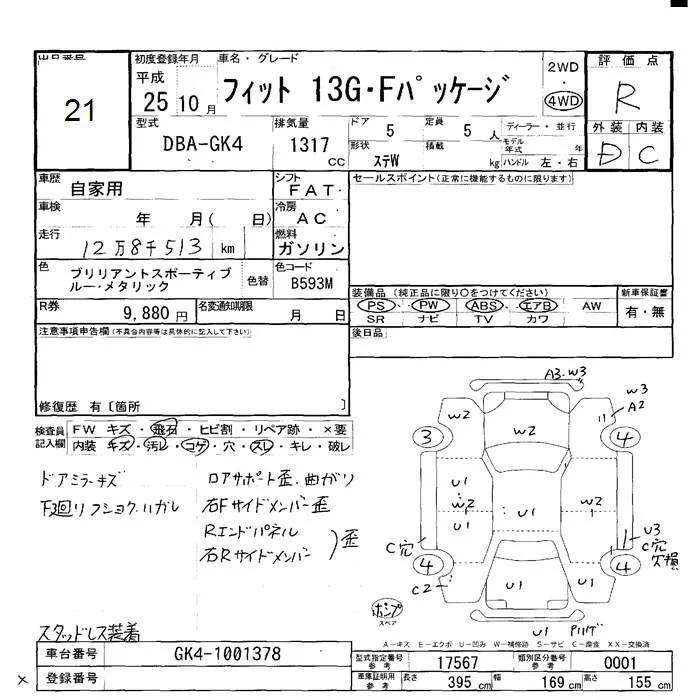 出品番号
21
初度登録年月
平成
25 10 月
車名・グレード
フィット 13G・Fパッケージ
2WD
・
4WD
評価点
R
外装 内装
D C
型式
DBA-GK4
排気量
1317 CC
ドア 5
定員 5 人
ディーラー・並行
形状 ステW
積載 kg
モデル年式 年
ハンドル 左・右
車歴 自家用
シフト FAT
セールスポイント(正常に機能するものに限ります)
車検 年 月( 日)
冷房 AC
走行 12万8千513 km
燃料 ガソリン
色 ブリリアントスポーティブ
ルー・メタリック
色替
色コード B593M
装備品(純正品に限り○をつけてください)
新車保証書
PS・PW・ABS・エアB・AW
SR ナビ TV カワ
有・無
R券 9,880 円
名変通知期限 月 日
後日品
注意事項申告欄(不具合内容等は具体的に記入して下さい)
修復歴 有〔箇所 〕
検査員記入欄
FW キズ・飛石・ヒビ割・リペア跡・×要
内装 キズ・汚レ・コゲ・穴・スレ・キレ・破レ
ドアミラーキズ
下廻リフショク.ハガレ
ロアサポート歪.曲がり
右Fサイドメンバー歪
Rエンドパネル
右Rサイドメンバー
)歪
スタッドレス装着
A3-W3
W3
A2
W2
W2
3
4
U1
W2
U1
U1
W2
C穴
U3
C穴
欠損
4
4
C2
U1
U1
ポンプ
スペア
U1
A-キズ E-エクボ U-凹み W-補修跡 S-サビ C-腐食 XX-交換済
車台番号 GK4-1001378
型式指定番号 参考 17567
類別区分番号 参考 0001
× 登録番号
車庫証明用 参考
長さ 395 cm
幅 169 cm
高さ 155 cm